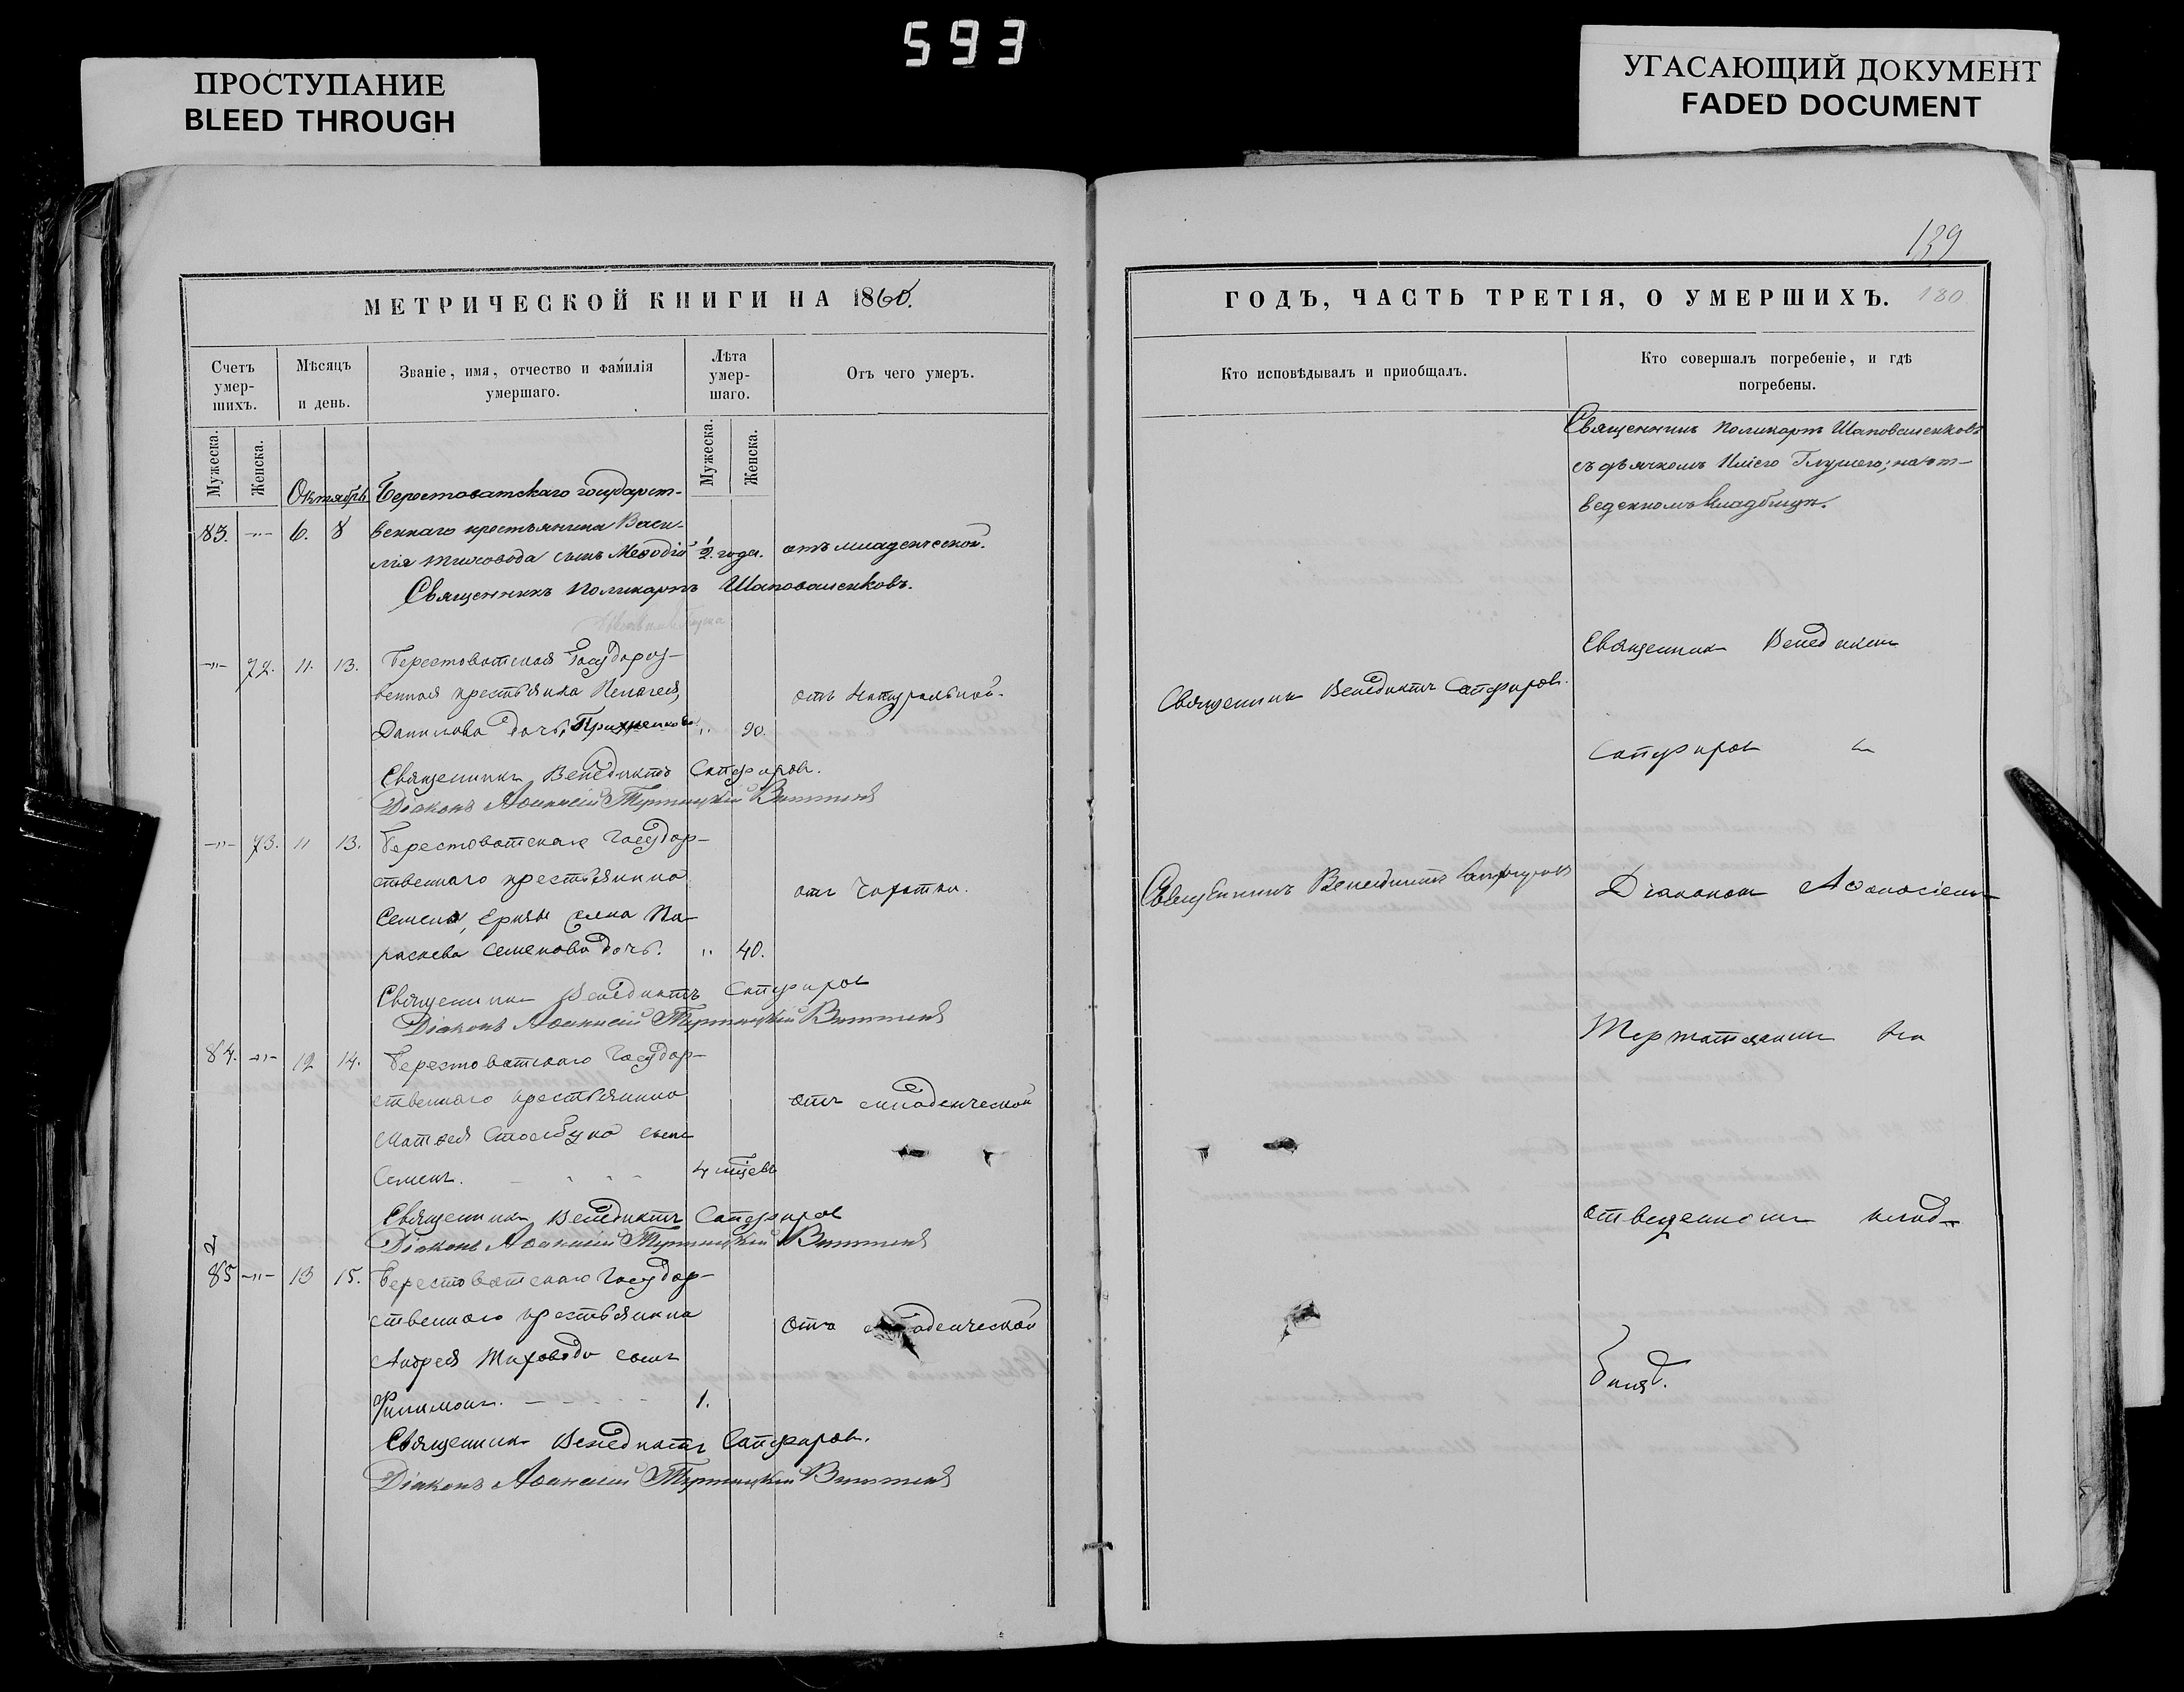 593
ПРОСТУПАНИЕ
BLEED THROUGH
УГАСАЮЩИЙ ДОКУМЕНТ
FADED DOCUMENT
МЕТРИЧЕСКОЙ КНИГИ НА 1860.
Счетъ умер-шихъ.
Мѣсяцъ и день.
Званіе, имя, отчество и фамилія умершаго.
Лѣта умер-шаго.
Отъ чего умеръ.
Мужеска.
Женска.
Мужеска.
Женска.
Октябрь Берестоватскаго государст-
83. -"- 6. 8 веннаго крестьянина Васи-
лія Тиховода сынъ Меѳодій ½ года. отъ младенческой.
Священникъ Поликарпъ Шаповаленковъ.
-"- 72. 11. 13. Берестоватская Государ-
венная крестьянка Пелагея,
отъ натуральной.
Данилова дочь, " 90.
Священникъ Венедиктъ Сапфировъ.
Діаконъ Аѳанасій
-"- 73. 11 13. Берестоватскаго Государ-
ственнаго крестьянина
отъ Чахотки.
Семена, Па-
раскева Семенова дочь. " 40.
Священникъ Венедиктъ Сапфировъ
Діаконъ Аѳанасій
84. -"- 12 14. Берестоватскаго Государ-
ственнаго крестьянина
отъ младенческой
Матвея сынъ
Семенъ. 4 мѣсЦевъ
Священникъ Венедиктъ Сапфировъ
Діаконъ Аѳанасій
85 -"- 13 15. Берестоватскаго Государ-
ственнаго крестьянина
отъ младенческой
Андрея Тиховода сынъ
Филимонъ. 1.
Священникъ Венедиктъ Сапфировъ.
Діаконъ Аѳанасій
139
ГОДЪ, ЧАСТЬ ТРЕТІЯ, О УМЕРШИХЪ. 180
Кто исповѣдывалъ и приобщалъ.
Кто совершалъ погребеніе, и гдѣ погребены.
Священникъ Поликарпъ Шаповаленковъ
съ дьячкомъ на от-
веденномъ кладбищѣ.
Священникъ Венедиктъ
Священникъ Венедиктъ Сапфировъ.
Сапфировъ съ
Священникъ Венедиктъ Сапфировъ
Діакономъ Аѳанасіемъ
на
отведенномъ клад-
бищѣ.